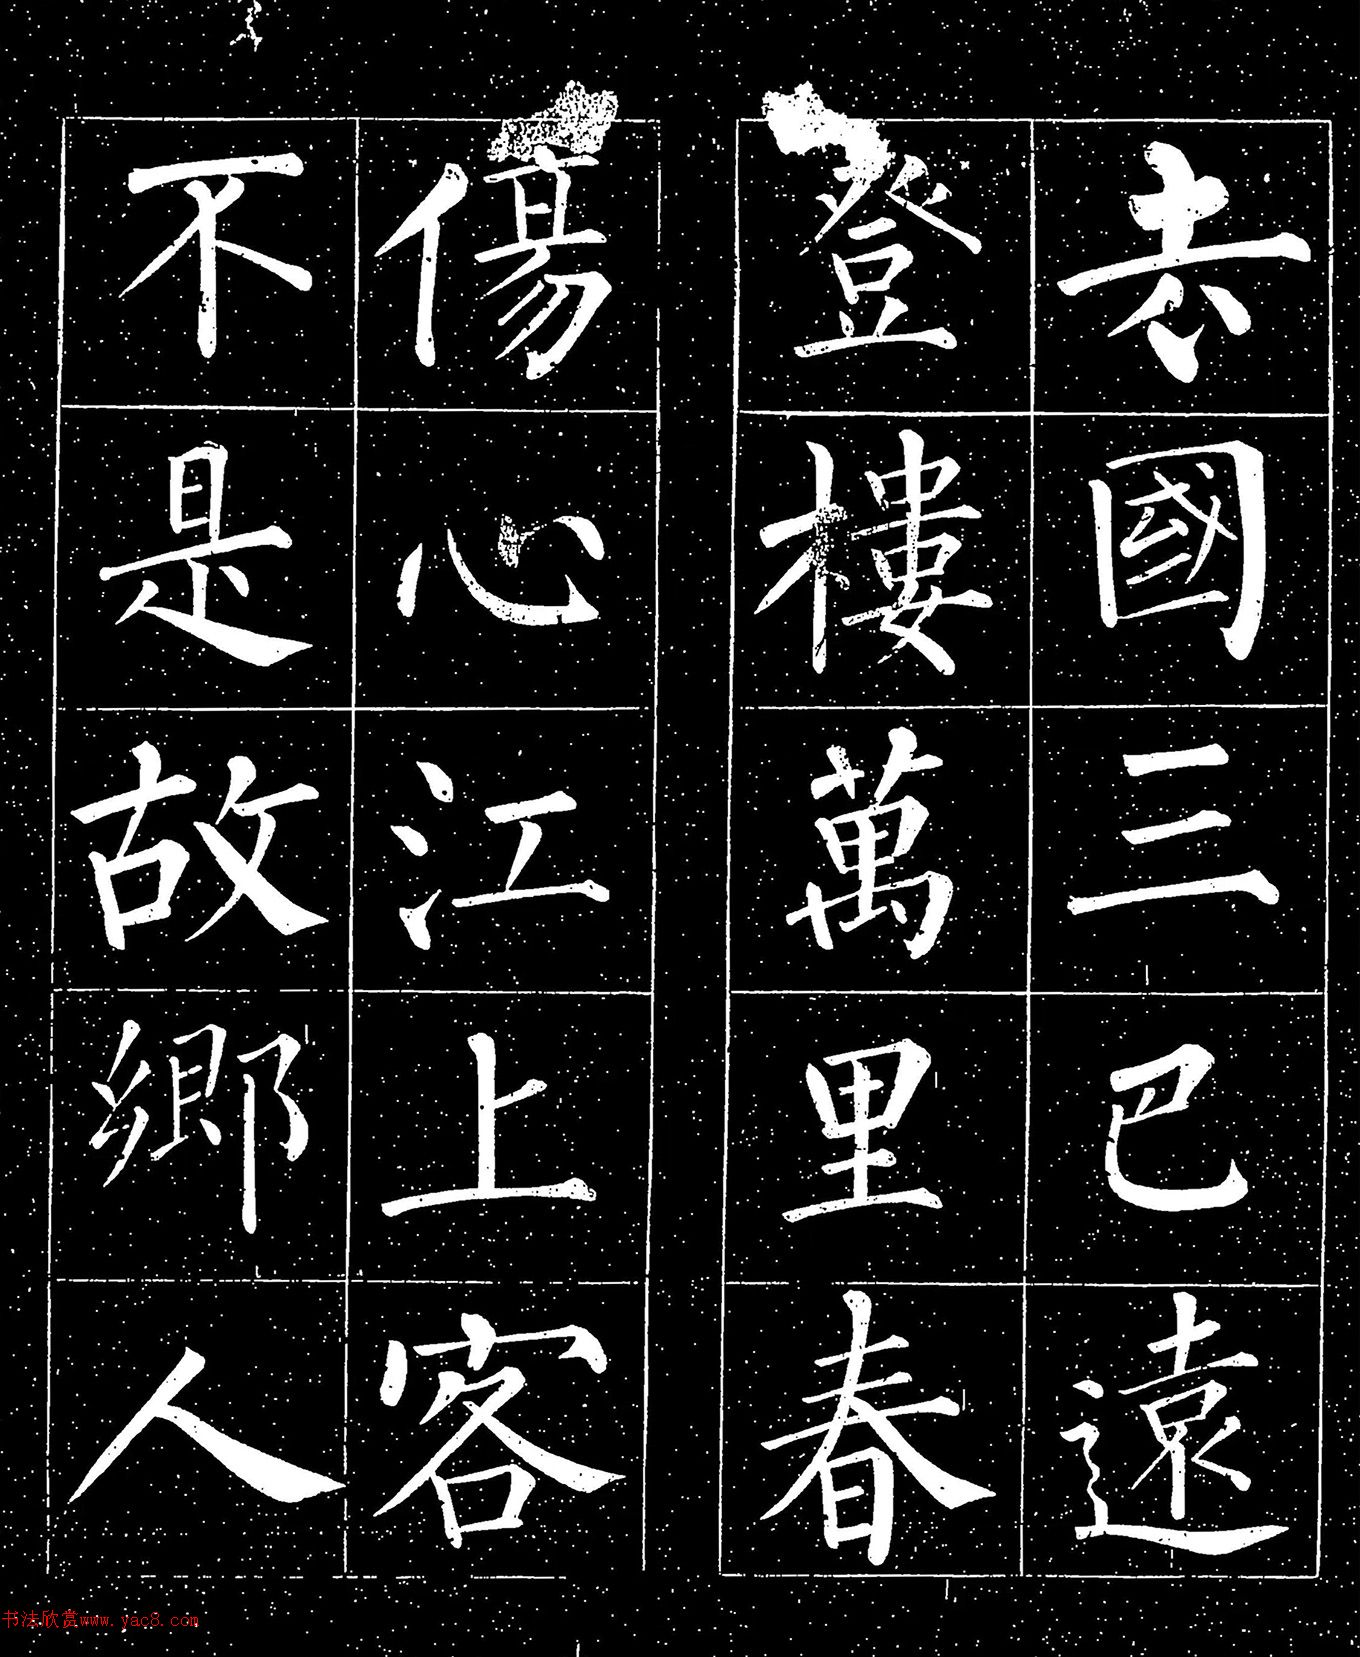 去國三巴遠
登樓萬里春
傷心江上客
不是故鄉人
书法欣赏www.yac8.com